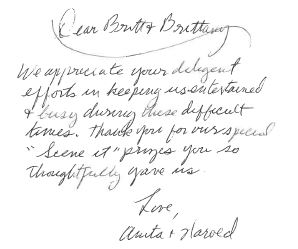 Dear Britt & Brittany
We appreciate your diligent
efforts in keeping us entertained
& busy during these difficult
times. Thank you for our special
"Scene it" prizes you so
thoughtfully gave us.
Love,
Anita & Harold